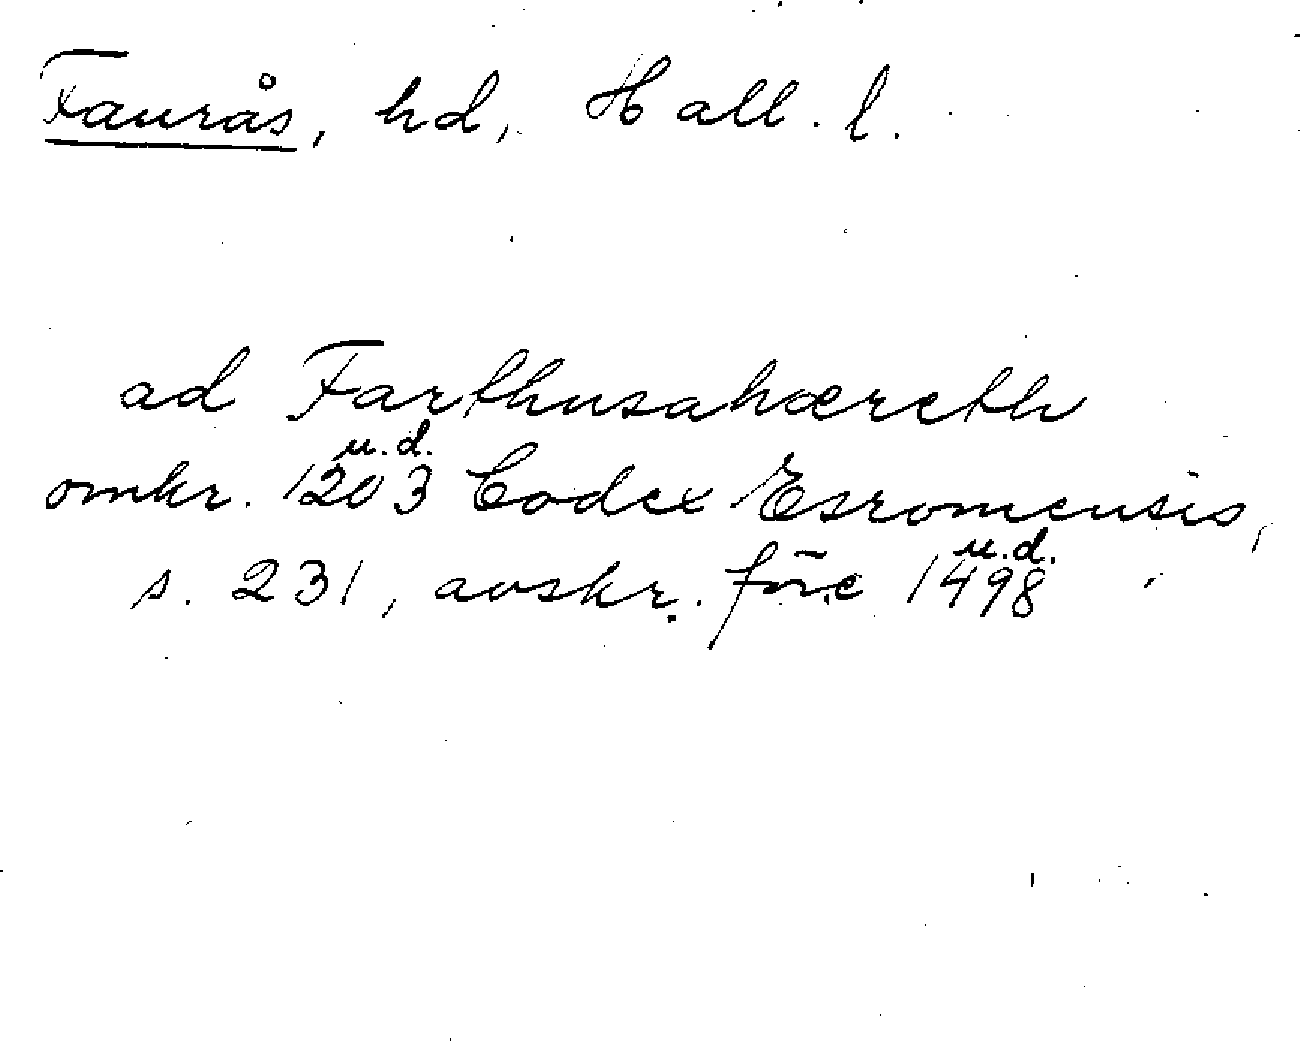 Faurås, hd, Hall. l.
ad Farthusahæreth
u.d.
omkr. 1203 Codex Esromensis,
u.d.
s. 231, avskr. före 1498